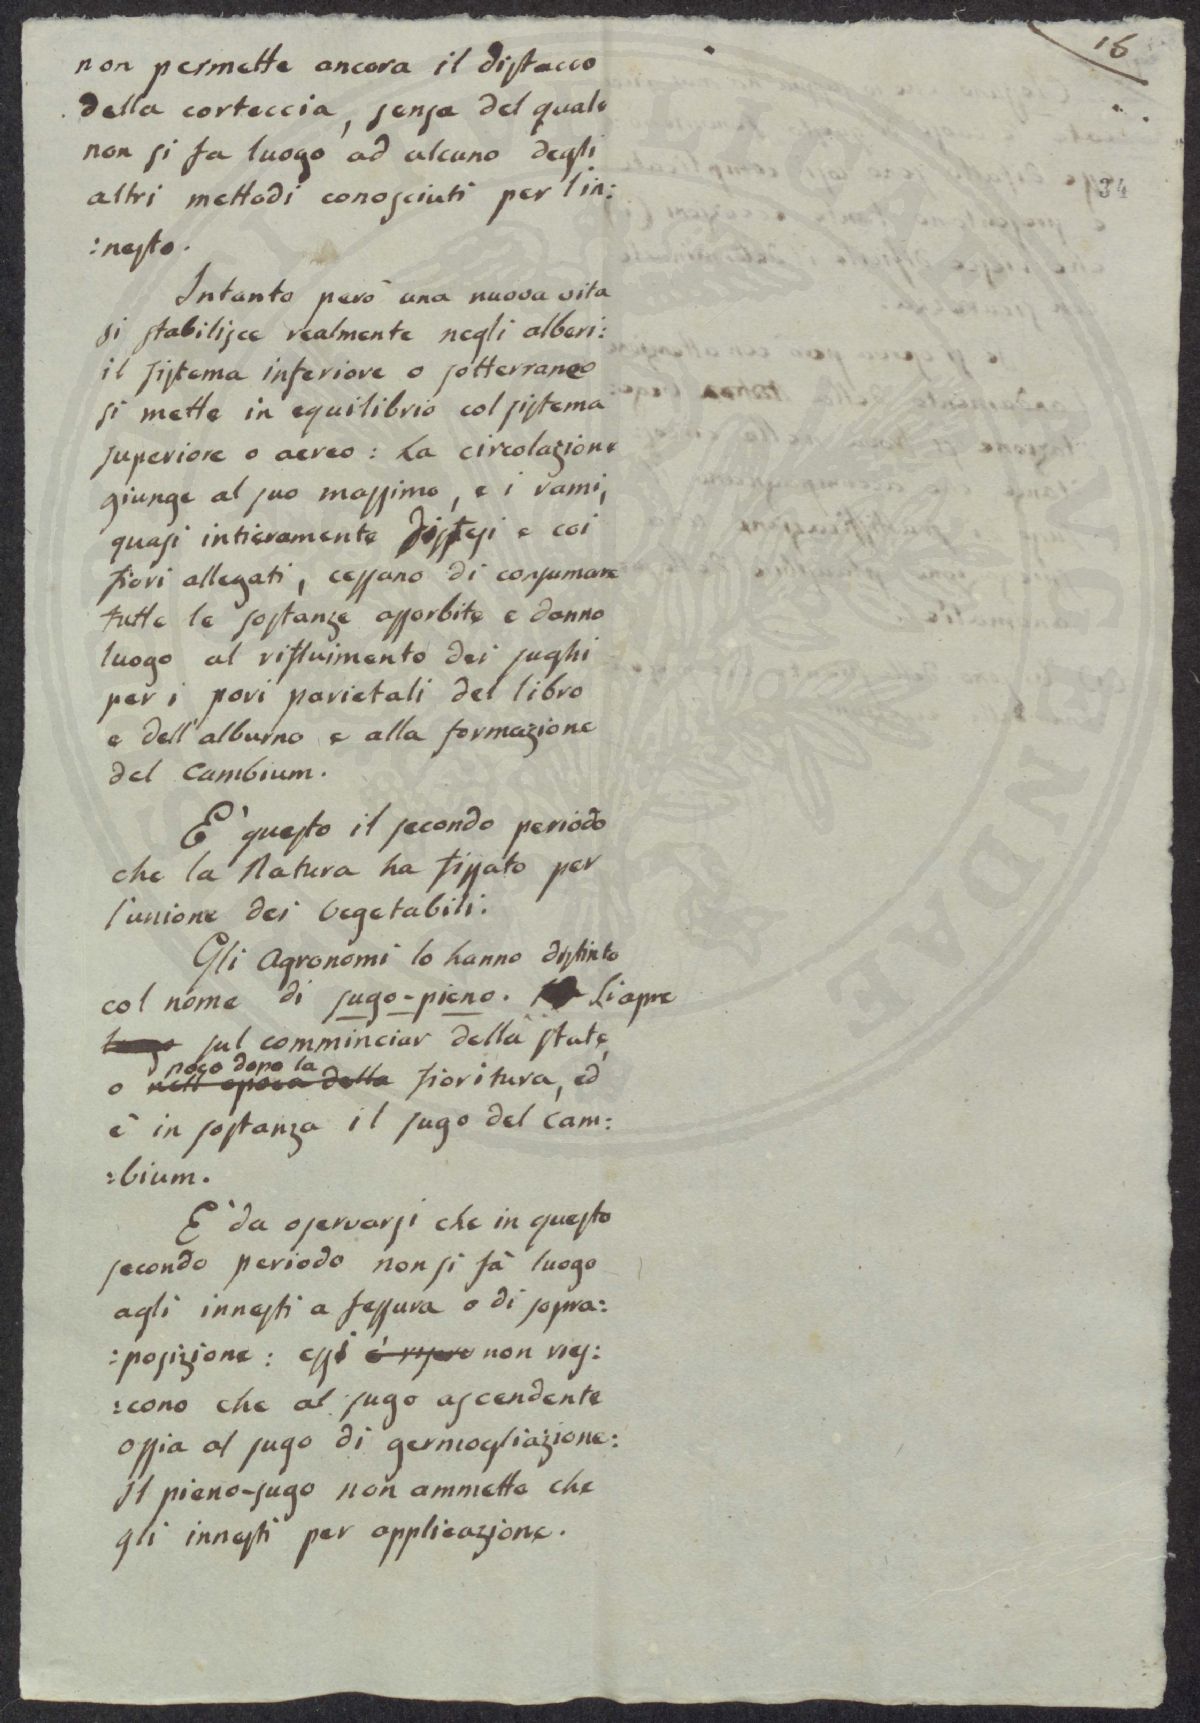 18
34
non permette ancora il distacco
della corteccia, senza del quale
non si fa luogo ad alcuno degli
altri mettodi conosciuti per l'in:
:nesto.
Intanto però una nuova vita
si stabilisce realmente negli alberi:
il sistema inferiore o sotterraneo
si mette in equilibrio col sistema
superiore o aereo: La circolazione
giunge al suo massimo, e i rami,
quasi intieramente distesi e coi
fiori allegati, cessano di consumare
tutte le sostanze assorbite e danno
luogo al rifluimento dei sughi
per i pori parietali del libro
e dell'alburno e alla formazione
del Cambium.
E' questo il secondo periodo
che la Natura ha fissato per
l'unione dei Vegetabili.
Gli Agronomi lo hanno distinto
col nome di sugo-pieno. Si apre
sul comminciar della state,
poco dopo la
o nell'epoca della fioritura, ed
è in sostanza il sugo del Cam:
:bium.
E' da osservarsi che in questo
secondo periodo non si fà luogo
agli innesti a fessura o di sopra:
:posizione: essi non ries:
:cono che al sugo ascendente
ossia al sugo di germogliazione:
Il pieno-sugo non ammette che
gli innesti per applicazione.